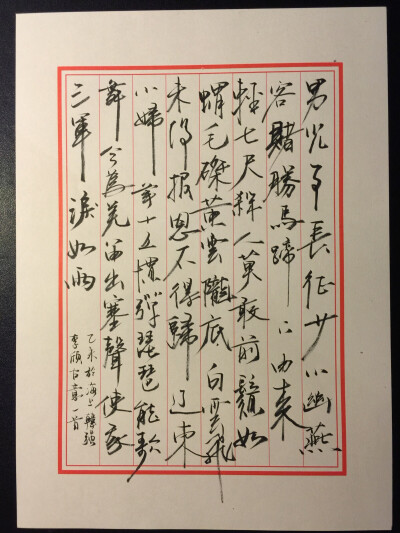 男児事長征少小幽燕
客賭勝馬蹄下由来
輕七尺殺人莫敢前鬚如
蝟毛磔黄雲隴底白雲飛
未得報恩不得歸遼東
小婦年十五慣彈琵琶能歌
舞今為羌笛出塞聲使我
三軍淚如雨
乙未於海上
李頎古意一首